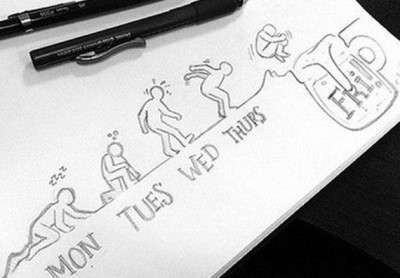 zzz
MON TUES WED THURS FRI!!